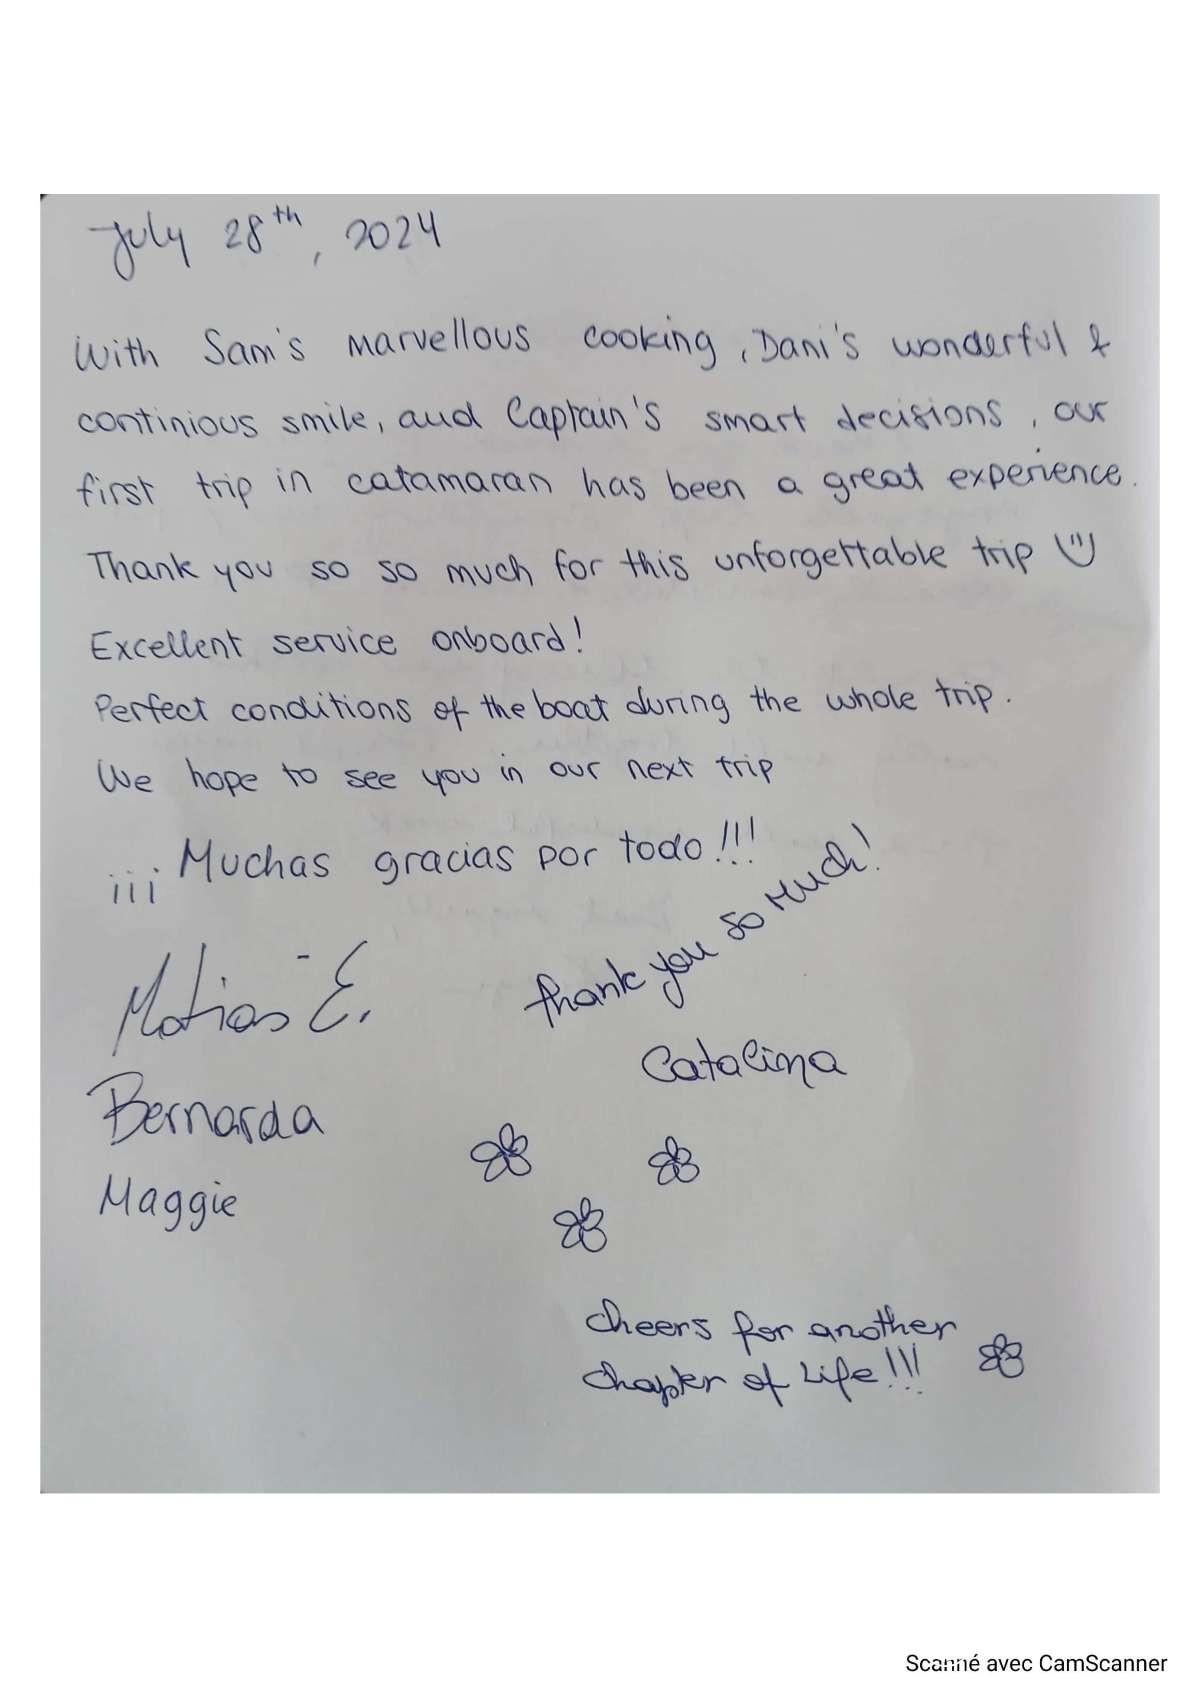 July 28th, 2024
With Sam's marvellous cooking, Dani's wonderful &
continious smile, and Captain's smart decisions, our
first trip in catamaran has been a great experience.
Thank you so so much for this unforgettable trip
Excellent service onboard!
Perfect conditions of the boat during the whole trip.
We hope to see you in our next trip
¡¡¡ Muchas gracias por todo!!!
thank you so much!
Matias E.
Catalina
Bernarda
Maggie
cheers for another
chapter of life!!!
Scanné avec CamScanner